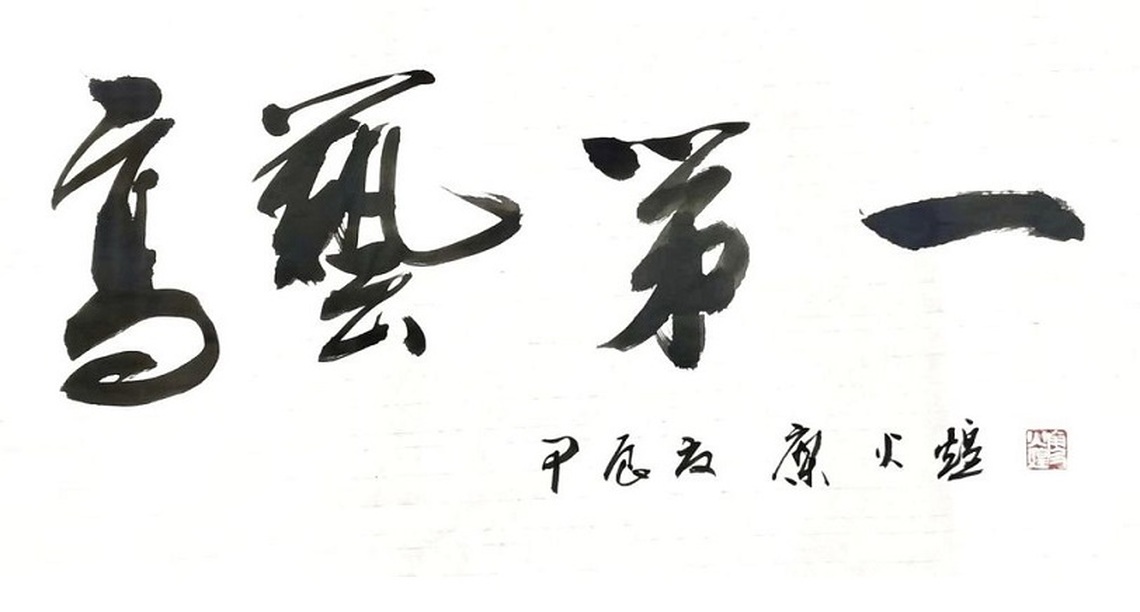 高藝第一
甲辰夏 糜火煌